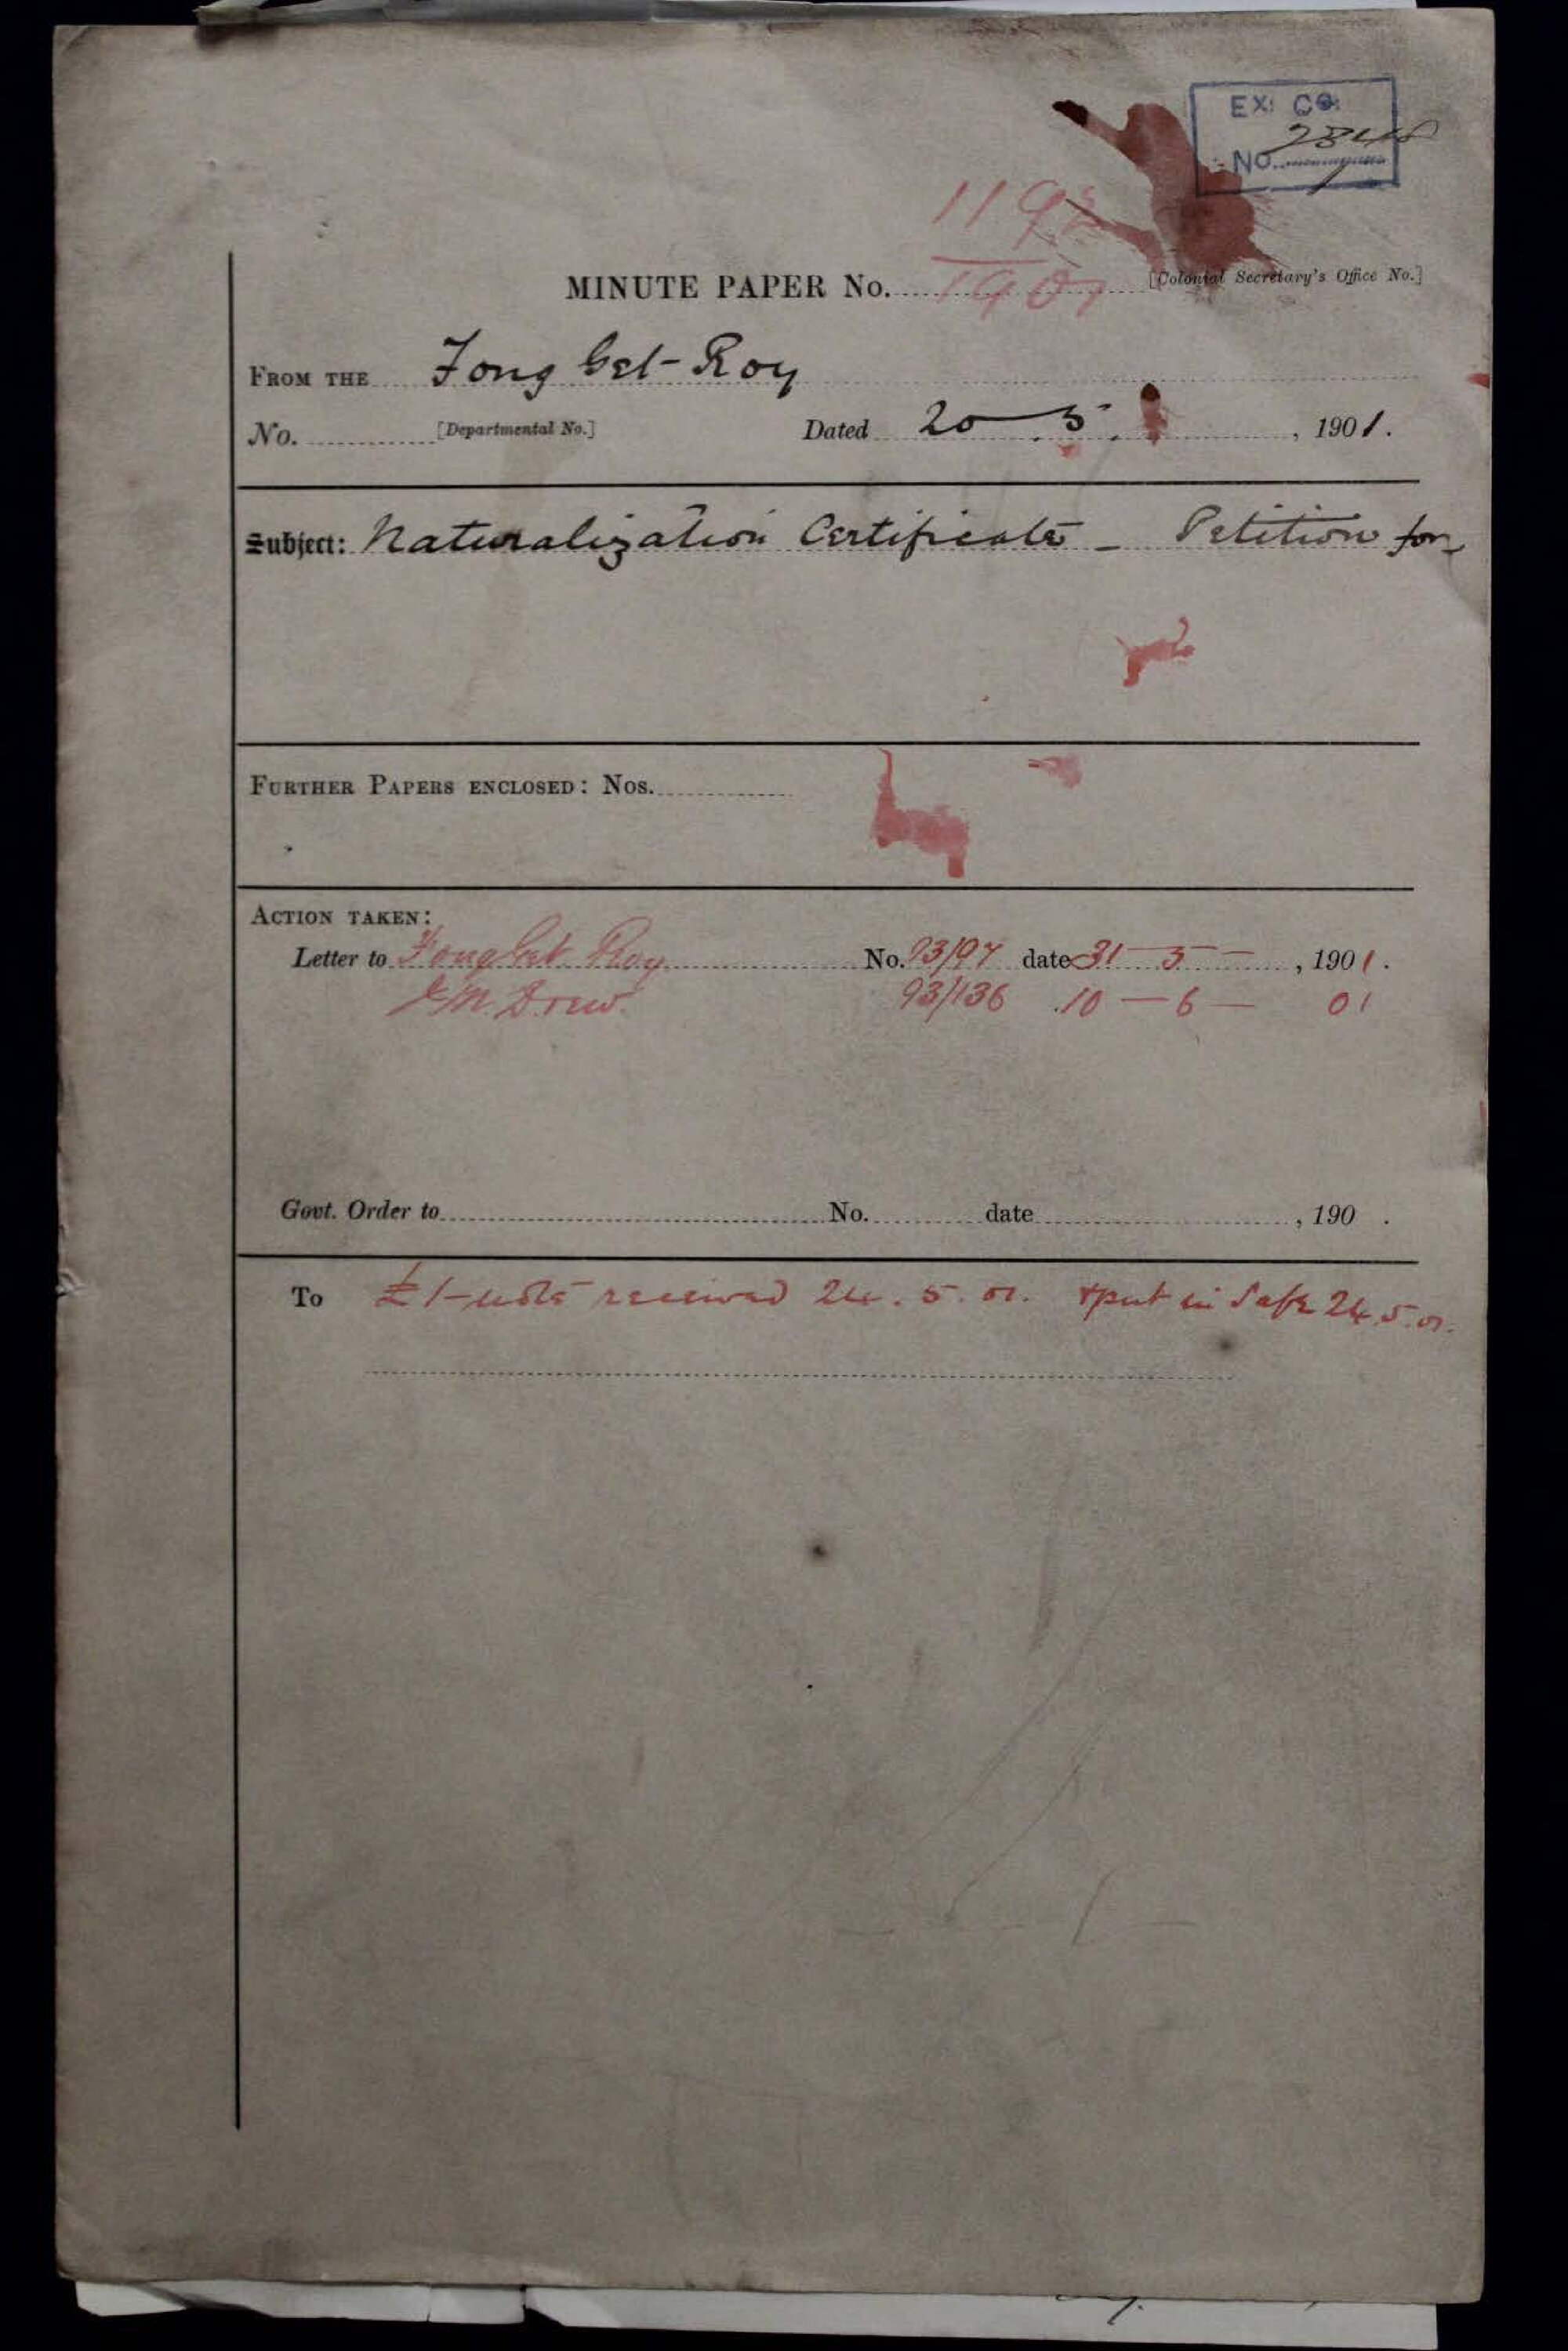 EX: CO:
NO.
MINUTE PAPER No. 1901 [Colonial Secretary's Office No.]
FROM THE Fong Get-Roy
No. [Departmental No.] Dated 20 . 5 . , 1901.
Subject: Naturalization Certificate - Petition for
FURTHER PAPERS ENCLOSED: Nos.
ACTION TAKEN:
Letter to Fong Get Roy No. 93/97 date 31 - 5 - , 1901.
Drew. 93/136 10 - 6 - 01
Govt. Order to No. date , 190 .
To £1-note received 24. 5. 01. & put in Safe 24.5.01.